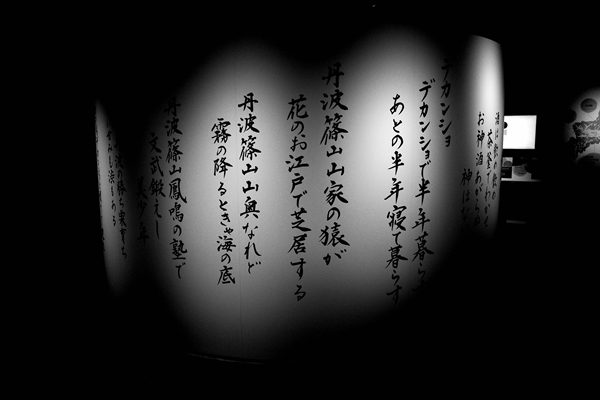 酒は飲め飲め
茶釜でわかせ
お神酒あがらぬ
神はな
デカンショ
デカンショで半年暮らす
あとの半年寝て暮らす
丹波篠山山家の猿が
花のお江戸で芝居する
丹波篠山山奥なれど
霧の降るときゃ海の底
丹波篠山鳳鳴の塾で
文武鍛えし
美少年